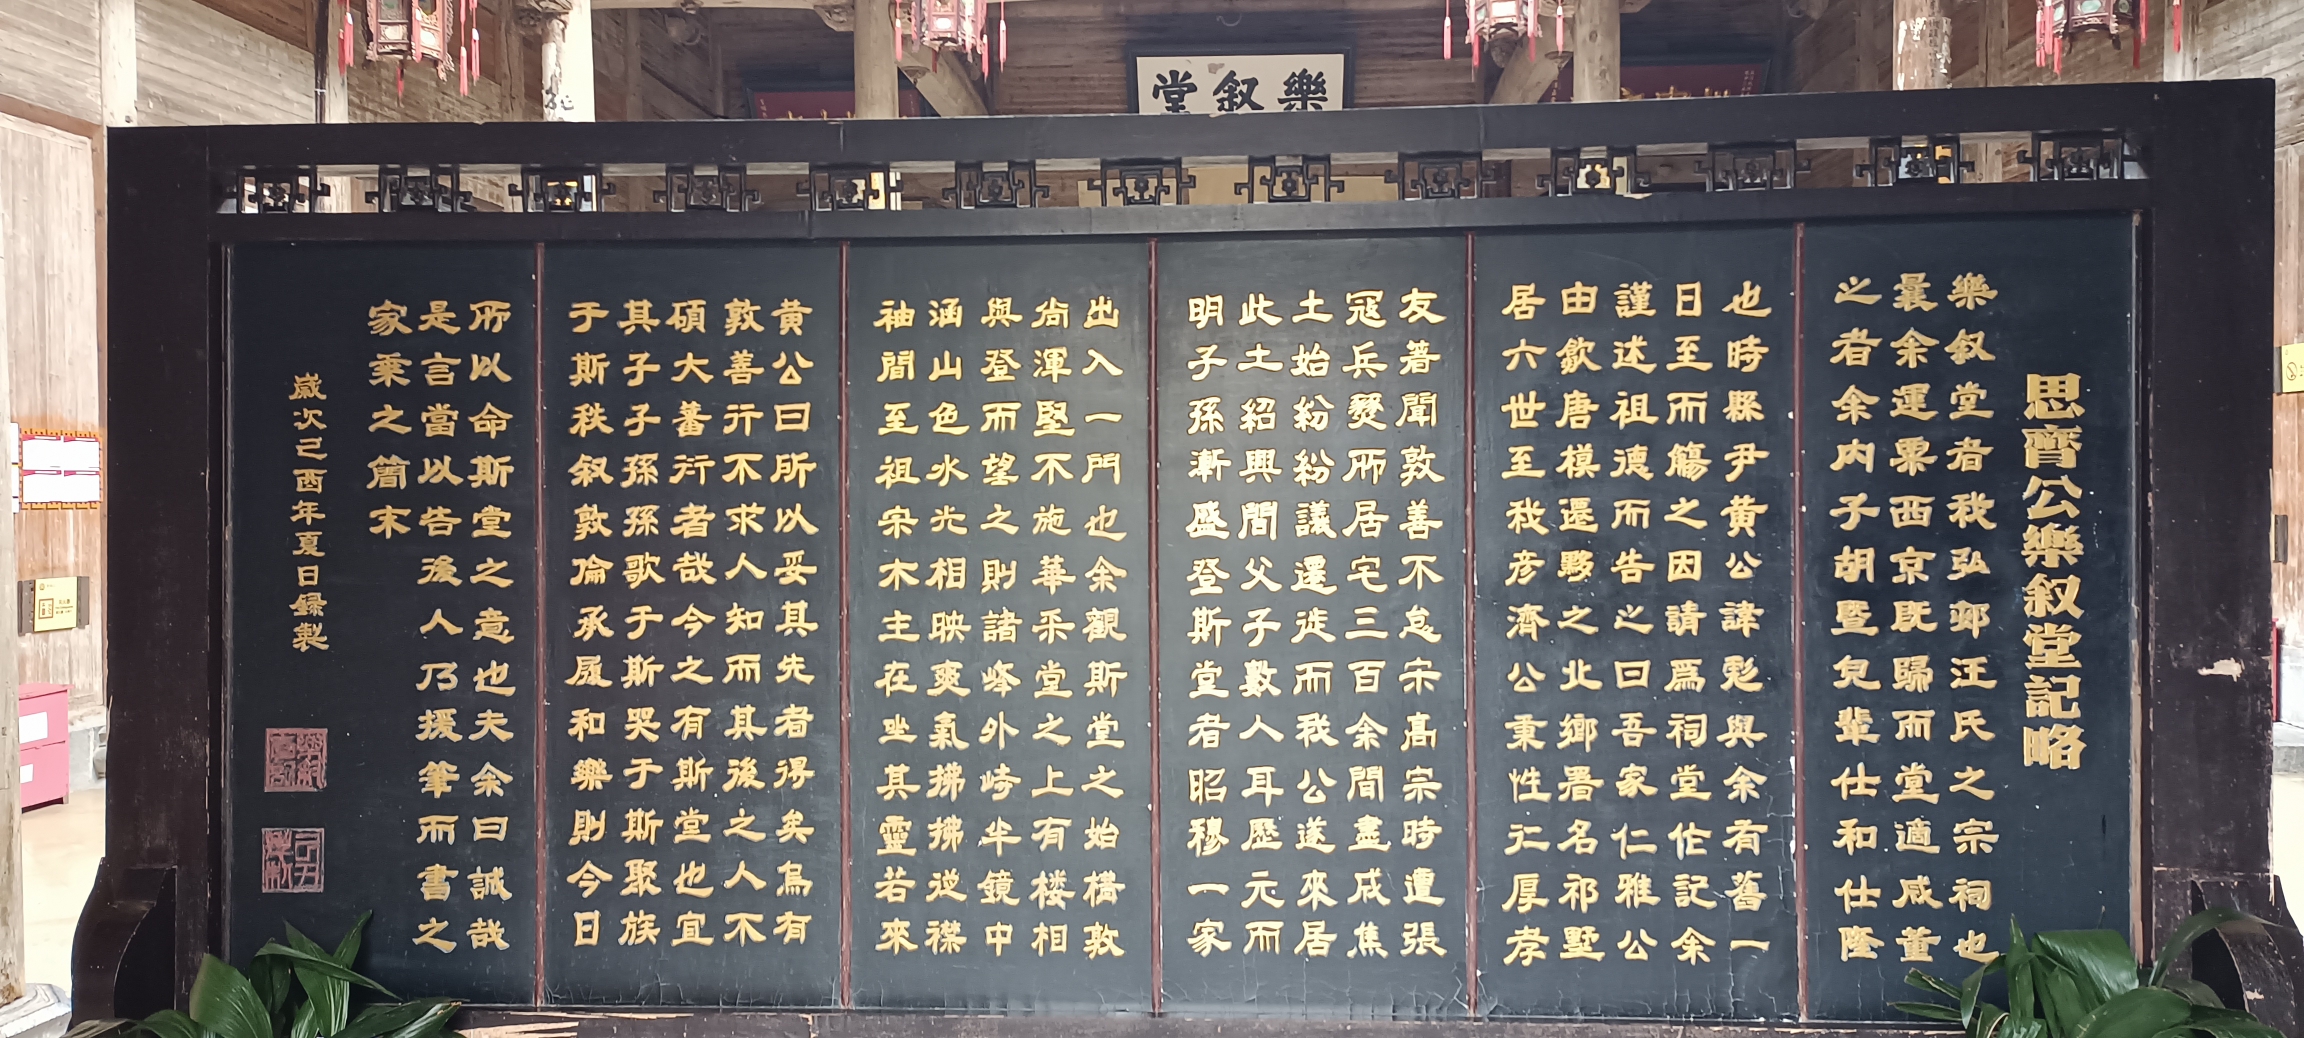 樂叙堂
思齊公樂叙堂記略
樂叙堂者我弘邨汪氏之宗祠也
曩余運粟西京既歸而堂適成董
之者余內子胡暨兒輩仕和仕隆
也時縣尹黃公諱彪與余有舊一
日至而觴之因請爲祠堂作記余
謹述祖德而告之曰吾家仁雅公
由歙唐模遷黟之北鄉署名祁墅
居六世至我彦濟公秉性仁厚孝
友著聞敦善不怠宋高宗時遭張
寇兵燹所居宅三百余間盡成焦
土始紛紛議遷徙而我公遂來居
此土紹興間父子數人耳歷元而
明子孫漸盛登斯堂者昭穆一家
出入一門也余觀斯堂之始構敦
尚渾堅不施華采堂之上有楼相
與登而望之則諸峰外峙半鏡中
涵山色水光相映爽氣拂拂逆襟
袖間至祖宗木主在坐其靈若來
黃公曰所以妥其先者得矣烏有
敦善行不求人知而其後之人不
碩大蕃衍者哉今之有斯堂也宜
其子子孫孫歌于斯哭于斯聚族
于斯秩叙敦倫承履和樂則今日
所以命斯堂之意也夫余曰誠哉
是言當以告後人乃援筆而書之
家乘之簡末
歲次己酉年夏日錄製